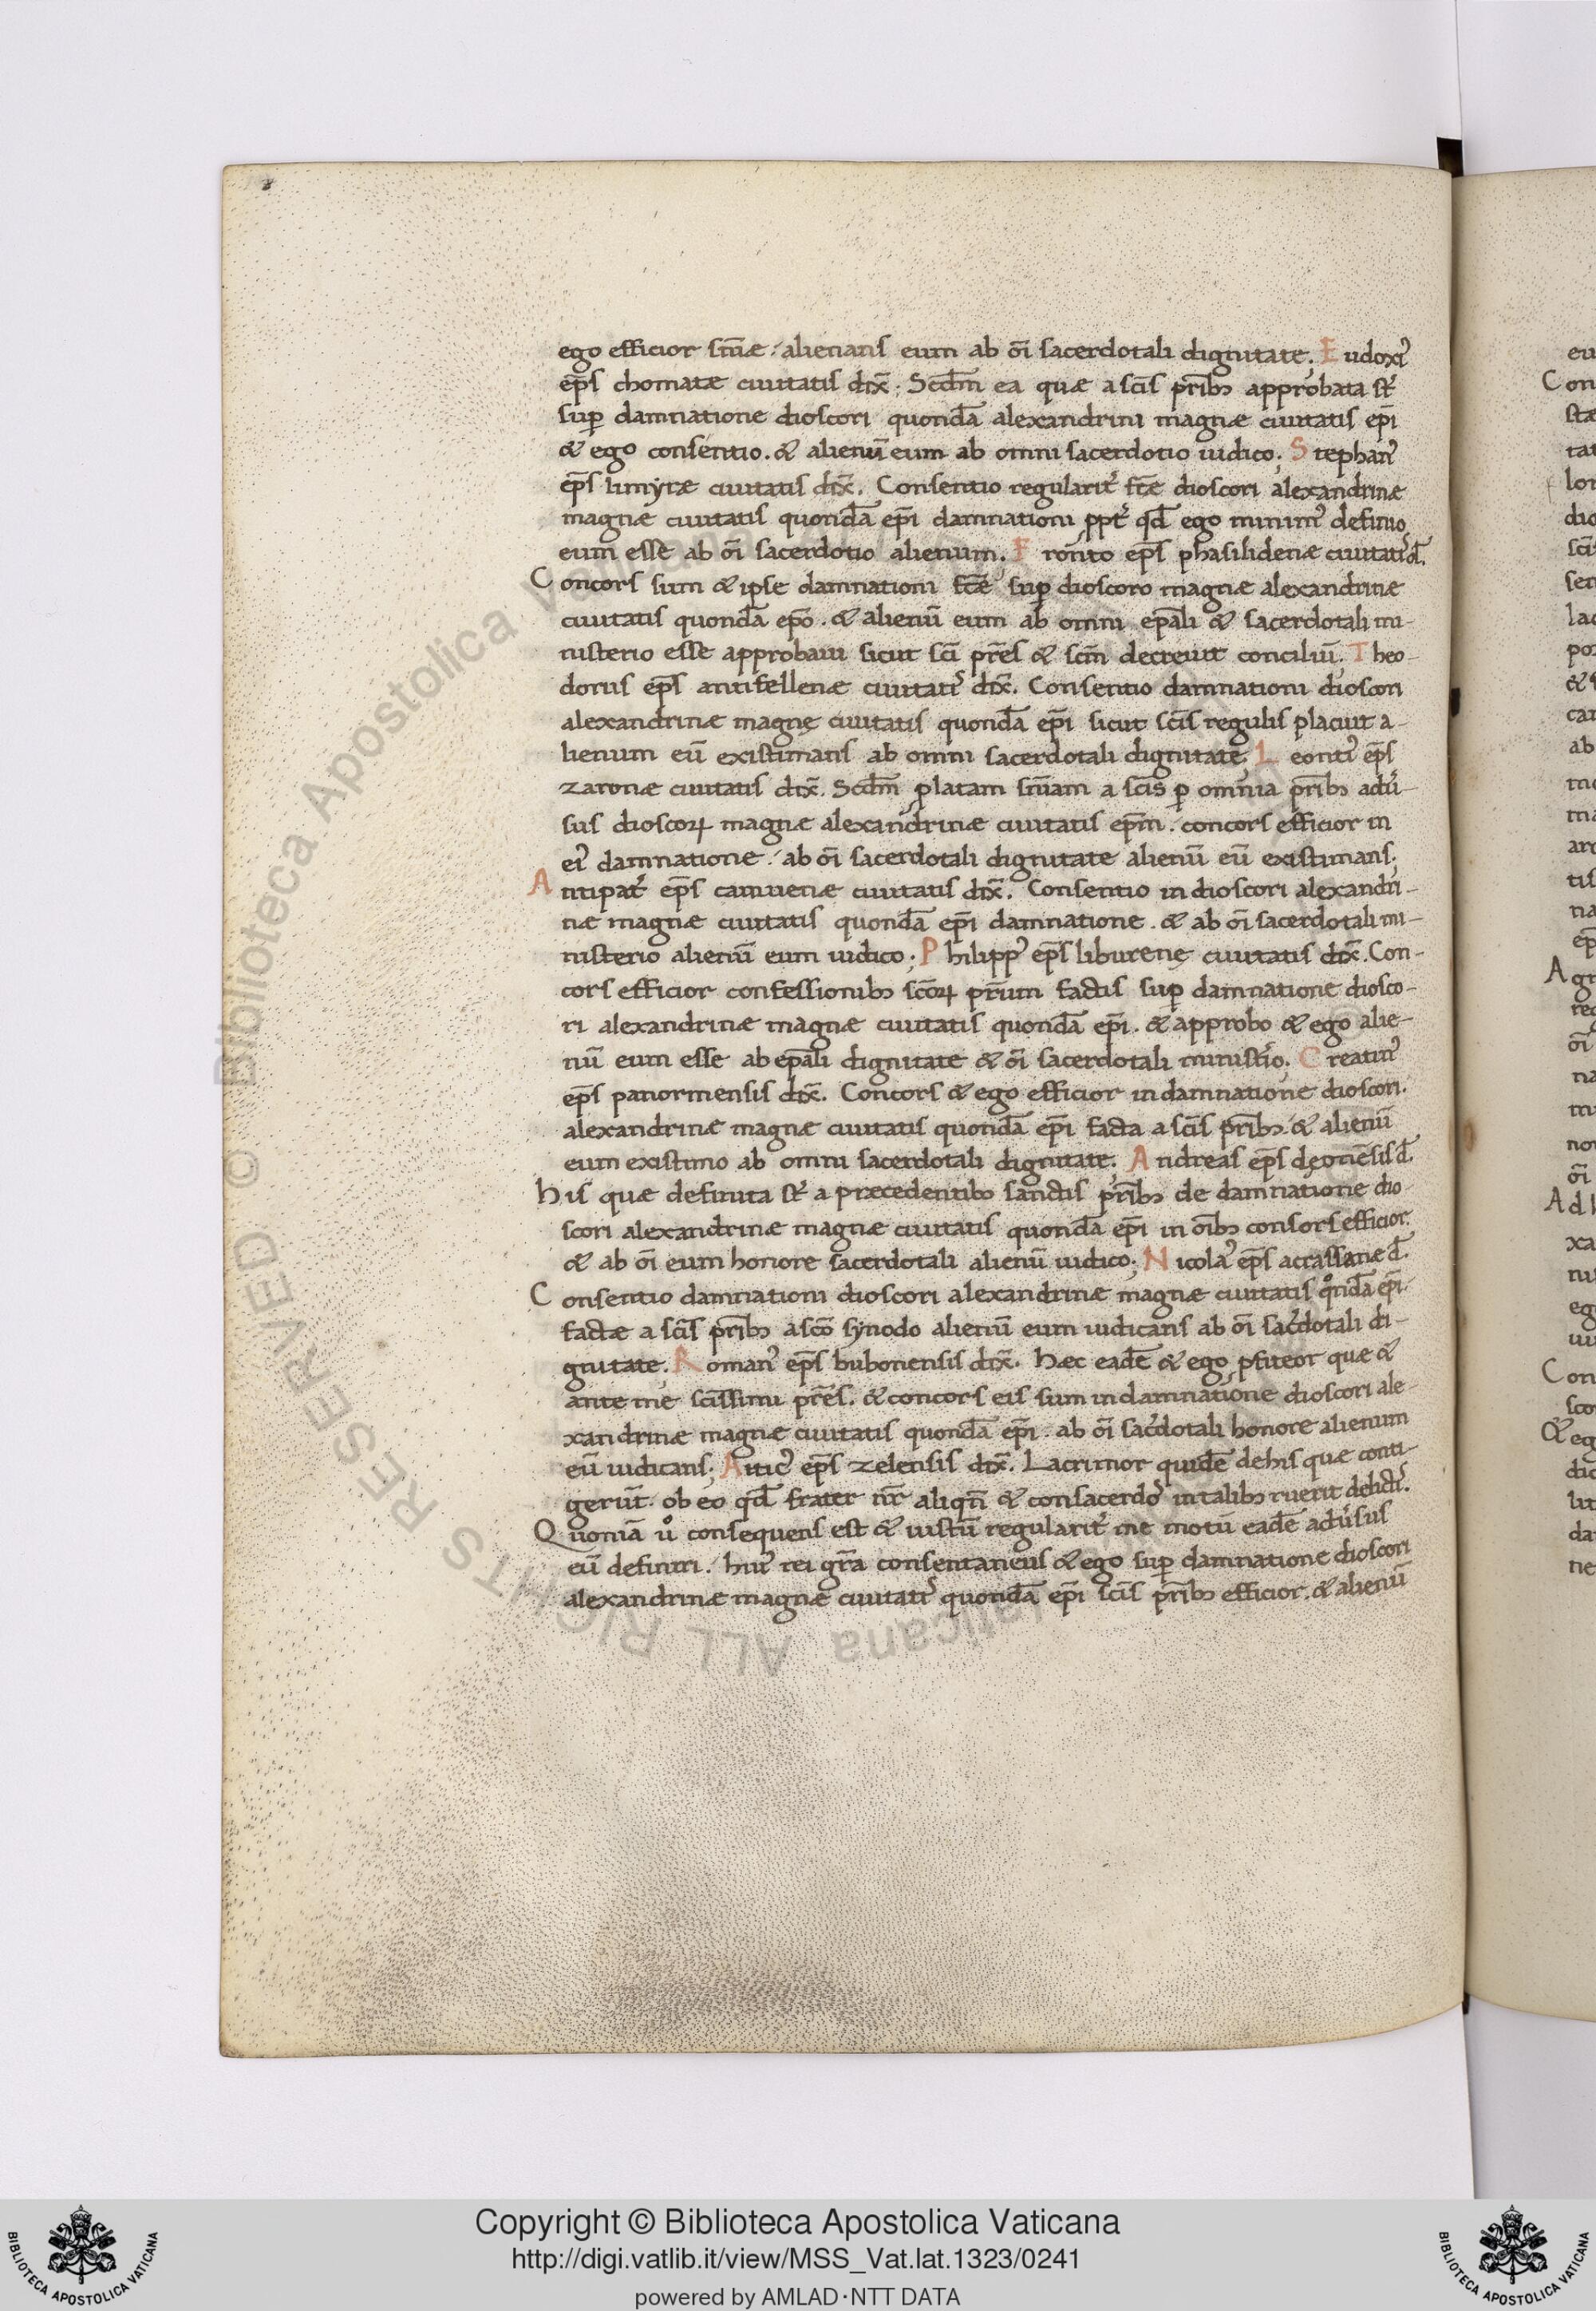 ego efficior sñiæ. alienans eum ab õi sacerdotali dignitate. Eudoxi᾽
ep̃s chomatæ ciuitatis dix̃. Scd̃m ea quæ a sc̃is prĩb; approbata st̃
sup̱ damnatione dioscori quondã alexandrini magnæ ciuitatis ep̃i
& ego consentio. & alienũ eum ab omni sacerdotio iudico. Stephan᾽
ep̃s limyræ ciuitatis dix̃. Consentio regularit᾽ fc̃æ dioscori alexandrinæ
magnæ ciuitatis quondã ep̃i damnationi ppt᾽ qd̃ ego minim᾽ definio
eum esse ab õi sacerdotio alienum. Fronto ep̃s phasilidenæ ciuitati᾽ d̃.
Concors sum & ipse damnationi fc̃æ sup̱ dioscoro magnæ alexandrinæ
ciuitatis quondã ep̃o. & alienũ eum ab omni ep̃ali & sacerdotali mi-
nisterio esse approbaui sicut sc̃i pr̃es & sc̃m decreuit conciliũ. Theo-
dorus ep̃s antifellenæ ciuitati᾽ dix̃. Consentio damnationi dioscori
alexandrinæ magnę ciuitatis quondã ep̃i sicut sc̃is regulis placuit a-
lienum eũ existimans ab omni sacerdotali dignitate. Leonti᾽ ep̃s
zaronæ ciuitatis dix̃. Scd̃m platam sñiam a sc̃is p̱ omnia prĩb; adu᾽-
sus dioscoꝝ magnæ alexandrinæ ciuitatis ep̃m. concors efficior in
ei᾽ damnatione. ab õi sacerdotali dignitate alienũ eũ existimans.
Antipat᾽ ep̃s camuenæ ciuitatis dix̃. Consentio in dioscori alexandri-
næ magnæ ciuitatis quondã ep̃i damnatione. & ab õi sacerdotali mi-
nisterio alienũ eum iudico; Philipp᾽ ep̃s liburenę ciuitatis dix̃. Con-
cors efficior confessionib; sc̃oꝝ pr̃um factis sup̱ damnatione diosco-
ri alexandrinæ magnæ ciuitatis quondã ep̃i. & approbo & ego alie-
nũ eum esse ab ep̃ali dignitate & õi sacerdotali minist᾽io. Creatin᾽
ep̃s panormensis dix̃. Concors & ego efficior in damnatione dioscori.
alexandrinæ magnæ ciuitatis quondã ep̃i facta a sc̃is prĩb; & alienũ
eum existimo ab omni sacerdotali dignitate. Andreas ep̃s deonẽsis d̃.
his quæ definita st̃ a præcedentib; sanctis prĩb; de damnatione dio-
scori alexandrinæ magnæ ciuitatis quondã ep̃i in oĩb; consors efficior.
& ab õi eum honore sacerdotali alienũ iudico; Nicola᾽ ep̃s acrassane d̃.
Consentio damnationi dioscori alexandrinæ magnæ ciuitatis qͦndã ep̃i
factæ a sc̃is prĩb; a sc̃o synodo alienũ eum iudicans ab õi sac᾽dotali di-
gnitate. Roman᾽ ep̃s bubonensis dix̃. Hæc eadẽ & ego pfiteor quæ &
ante me sc̃issimi pr̃es. & concors eis sum in damnatione dioscori ale-
xandrinæ magnæ ciuitatis quondã ep̃i. ab õi sac᾽dotali honore alienum
eũ iudicans; Attic᾽ ep̃s zelensis dix̃. Lacrimor quidẽ de his que conti-
gerũt. ob eo qd̃ frater nr̃ aliqñ & consacerdo᾽ in talib; ruerit delicti᾽.
Quoniã uͦ consequens est & iustũ regularit᾽ me motũ eadẽ adu᾽sus
eũ definiri. hui᾽ rei gr̃a consentaneus & ego sup̱ damnatione dioscori
alexandrinæ magnæ ciuitati᾽ quondã ep̃i sc̃is prĩb; efficior. & alienũ
Copyright © Biblioteca Apostolica Vaticana
http://digi.vatlib.it/view/MSS_Vat.lat.1323/0241
powered by AMLAD·NTT DATA